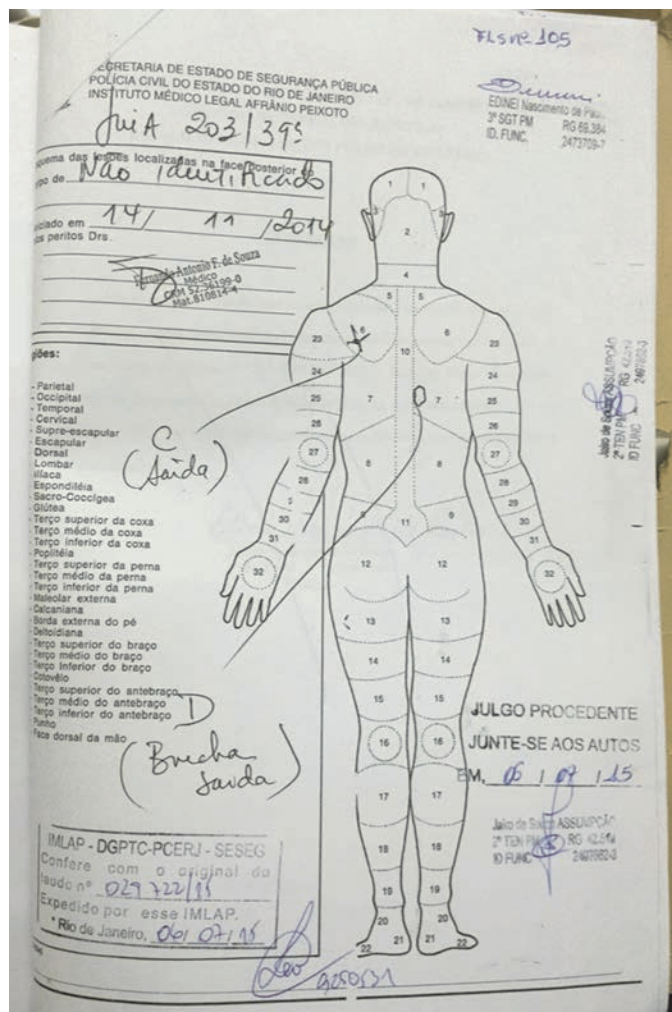 Fls nº 105
SECRETARIA DE ESTADO DE SEGURANÇA PÚBLICA
POLÍCIA CIVIL DO ESTADO DO RIO DE JANEIRO
INSTITUTO MÉDICO LEGAL AFRÂNIO PEIXOTO
EDINEI Nascimento de
3º SGT PM RG 69.384
ID. FUNC. 2473709-7
Guia 203/39ª
quema das lesões localizadas na face posterior do
rpo de Não identificado
iciado em 14/ 11 /2014
os peritos Drs.
Fernando Antonio F. de Souza
Médico
CRM 52.26199-0
Mat.810814-4
giões:
- Parietal
- Occipital
- Temporal
- Cervical
- Supre-escapular
- Escapular
- Dorsal
- Lombar
- Ilíaca
- Espondiléia
- Sacro-Coccígea
- Glútea
- Terço superior da coxa
- Terço médio da coxa
- Terço inferior da coxa
- Poplitéia
- Terço superior da perna
- Terço médio da perna
- Terço inferior da perna
- Maleolar externa
- Calcaniana
- Borda externa do pé
- Deltoidiana
- Terço superior do braço
- Terço médio do braço
- Terço Inferior do braço
- Cotovêlo
- Terço superior do antebraço
- Terço médio do antebraço
- Terço inferior do antebraço
- Punho
- Face dorsal da mão
C
(Saída)
D
(Brecha
Saída)
1 1
3 3
2
4
5 5
6 6
23 10 23
24 24
25 7 7 25
26 26
27 27
8 8
28 28
30 9 11 9 30
31 31
32 12 12 32
13 13
14 14
15 15
16 16
17 17
18 18
19 19
20 20
22 21 21 22
Jairo de Souza ASSUMPÇÃO
2º TEN PM RG 42.514
ID FUNC 2497862-3
JULGO PROCEDENTE
JUNTE-SE AOS AUTOS
EM, 06 / 07 / 15
Jairo de Souza ASSUMPÇÃO
2º TEN PM RG 42.514
ID FUNC 2497862-3
IMLAP - DGPTC-PCERJ - SESEG
Confere com o original do
laudo nº 029722/15
Expedido por esse IMLAP.
Rio de Janeiro, 06/ 07/ 15